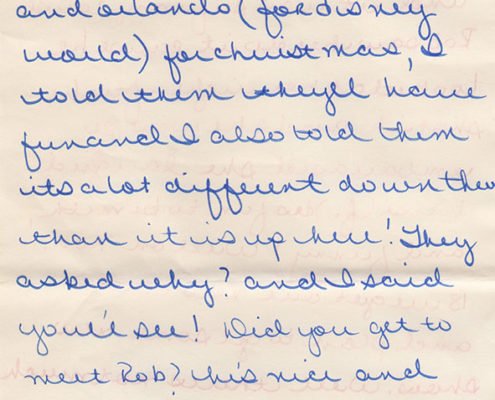 and orlando (for disney
world) for christmas, I
told them theyll have
fun and I also told them
its a lot different down ther
than it is up here! They
asked why? and I said
you'll see! Did you get to
meet Rob? his nice and